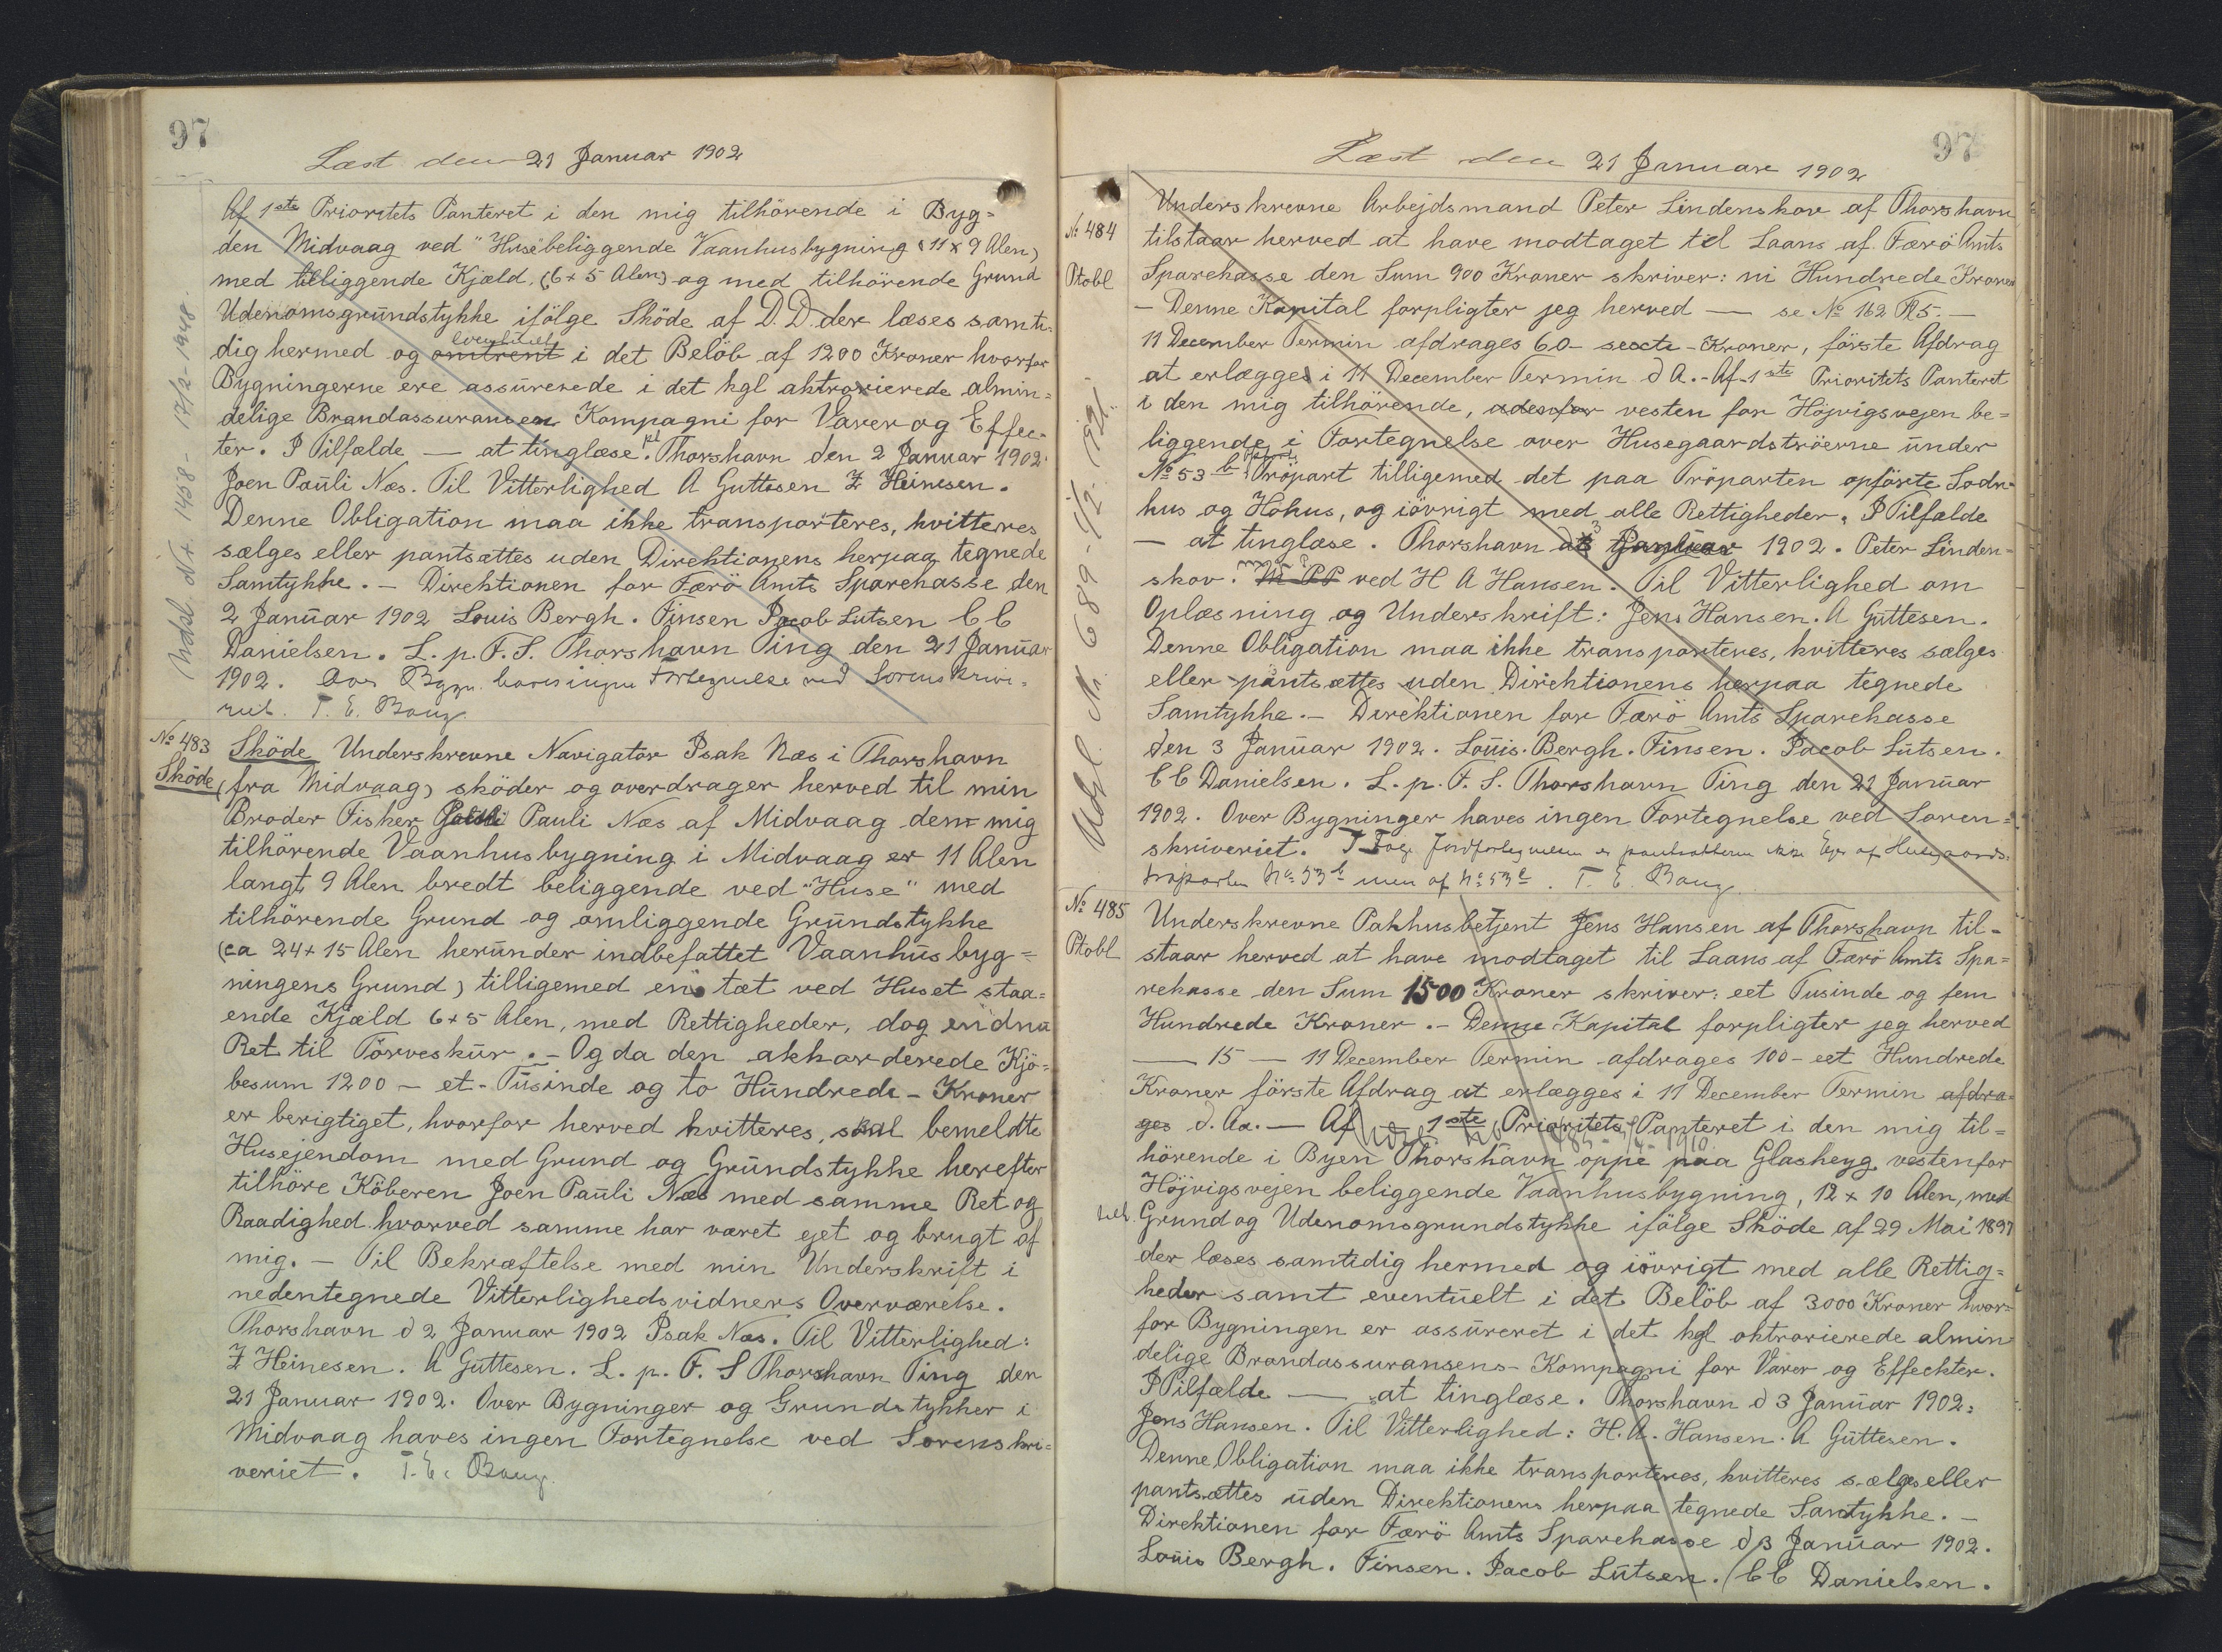 97
Læst den 21 Januar 1902
Af 1ste Prioritets Panteret i den mig tilhörende i Byg=
den Midvaag ved "Huse" beliggende Vaanhusbygning (11 x 9 Alen)
med tilliggende Kjæld, (6 + 5 Alen) og med tilhörende Grund
Udenomsgrundstykke ifölge Sköde af D.D. der læses samti=
dig hermed og omtrent eventuelt i det Belöb af 1200 Kroner hvorfor
Bygningerne ere assurerede i det kgl aktroierede almin=
delige Brandassurancen Kompagni for Varer og Effec=
ter. I Tilfælde — at tinglæse. pt Thorshavn den 2 Januar 1902.
Joen Pauli Næs. Til Vitterlighed A Guttesen Z Heinesen.
Denne Obligation maa ikke transporteres, kvitteres
sælges eller pantsættes uden Direktionens herpaa tegnede
Samtykke. - Direktionen for Færö Amts Sparekasse den
2 Januar 1902 Louis Bergh. Finsen Jacob Lutsen C C
Danielsen. L. p. F. S. Thorshavn Ting den 21 Januar
1902. Over Bygn. haves ingen Fortegnelse ved Sorenskrive=
riet. T. E. Bang.
Udsl. No 1458 - 17/2 - 1948.
No 483
Sköde
Sköde Underskrevne Navigatör Isak Næs i Thorshavn
(fra Midvaag) sköder og overdrager herved til min
Broder Fisker Pauli Næs af Midvaag den mig
tilhörende Vaanhusbygning i Midvaag er 11 Alen
langt, 9 Alen bredt beliggende ved "Huse" med
tilhörende Grund og omliggende Grundstykke
(ca 24 + 15 Alen herunder indbefattet Vaanhusbyg=
ningens Grund) tilligemed en tæt ved Huset staa=
ende Kjæld 6 + 5 Alen, med Rettigheder, dog endnu
Ret til Törveskur. - Og da den akkorderede Kjö=
besum 1200 - et - Tusinde og to Hundrede - Kroner
er berigtiget, hvorfor herved kvitteres, skal bemeldte
Husejendom med Grund og Grundstykke herefter
tilhöre Köberen Joen Pauli Næs med samme Ret og
Raadighed hvorved samme har været ejet og brugt af
mig. - Til Bekræftelse med min Underskrift i
nedentegnede Vitterlighedsvidners Overværelse.
Thorshavn d 2 Januar 1902 Isak Næs. Til Vitterlighed:
Z Heinesen. A Guttesen. L. p. F. S Thorshavn Ting den
21 Januar 1902. Over Bygninger og Grundstykker i
Midvaag haves ingen Fortegnelse ved Sorenskri=
veriet. T. E. Bang.
97
Læst den 21 Januar 1902
No 484
Ptobl
Underskrevne Arbejdsmand Peter Lindenskov af Thorshavn
tilstaar herved at have modtaget til Laans af Færö Amts
Sparekasse den Sum 900 Kroner skriver: ni Hundrede Kroner
- Denne Kapital forpligter jeg herved — se No 162 R5. -
11 December Termin afdrages 60 - sexti - Kroner, förste Afdrag
at erlægges i 11 December Termin d A. - Af 1ste Prioritets Panteret
i den mig tilhörende, udenfor vesten for Höjvigsvejen be=
liggende, i Fortegnelse over Husegaardströerne under
No 53 b Tröpart tilligemed det paa Tröparten opförte Lodn=
hus og Höhus, og iövrigt med alle Rettigheder. I Tilfælde
- at tinglæse. Thorshavn d 3 Januar 1902. Peter Linden=
skov. ved H A Hansen. Til Vitterlighed om
Oplæsning og Underskrift: Jens Hansen. A Guttesen.
Denne Obligation maa ikke transporteres, kvitteres sælges
eller pantsættes uden Direktionens herpaa tegnede
Samtykke. - Direktionen for Færö Amts Sparekasse
den 3 Januar 1902. Louis Bergh. Finsen. Jacob Lutsen.
C C Danielsen. L. p. F. S. Thorshavn Ting den 21 Januar
1902. Over Bygninger haves ingen Fortegnelse ved Soren=
skriveriet. Ifølge Jordfortegnelsen er pantsætteren ikke Ejer af Husegaards=
tröparten No 53 b men af No 53 c. T. E. Bang.
No 485
Ptobl
Underskrevne Pakhusbetjent Jens Hansen af Thorshavn til=
staar herved at have modtaget til Laans af Færö Amts Spa=
rekasse den Sum 1500 Kroner skriver: eet Tusinde og fem
Hundrede Kroner. - Denne Kapital forpligter jeg herved
— 15 — 11 December Termin afdrages 100 - eet Hundrede
Kroner förste Afdrag at erlægges i 11 December Termin afdra=
ges d. Aa. — Af — 1ste Prioritets Panteret i den mig til=
hörende i Byen Thorshavn oppe paa Glasheyg, vestenfor
Höjvigsvejen beliggende Vaanhusbygning, 12 x 10 Alen, med
tilh. Grund og Udenomsgrundstykke ifölge Sköde af 29 Mai 1897
der læses samtidig hermed og iövrigt med alle Rettig=
heder samt eventuelt i det Belöb af 3000 Kroner hvor=
for Bygningen er assureret i det kgl oktroierede almin
delige Brandassuransens - Kompagni for Varer og Effechter.
I Tilfælde — at tinglæse. Thorshavn d 3 Januar 1902.
Jens Hansen. Til Vitterlighed: H. A. Hansen. A Guttesen.
Denne Obligation maa ikke transporteres, kvitteres sælges eller
pantsættes uden Direktionens herpaa tegnede Samtykke. -
Direktionen for Færö Amts Sparekasse d 3 Januar 1902.
Louis Bergh. Finsen. Jacob Lutsen. C C Danielsen.